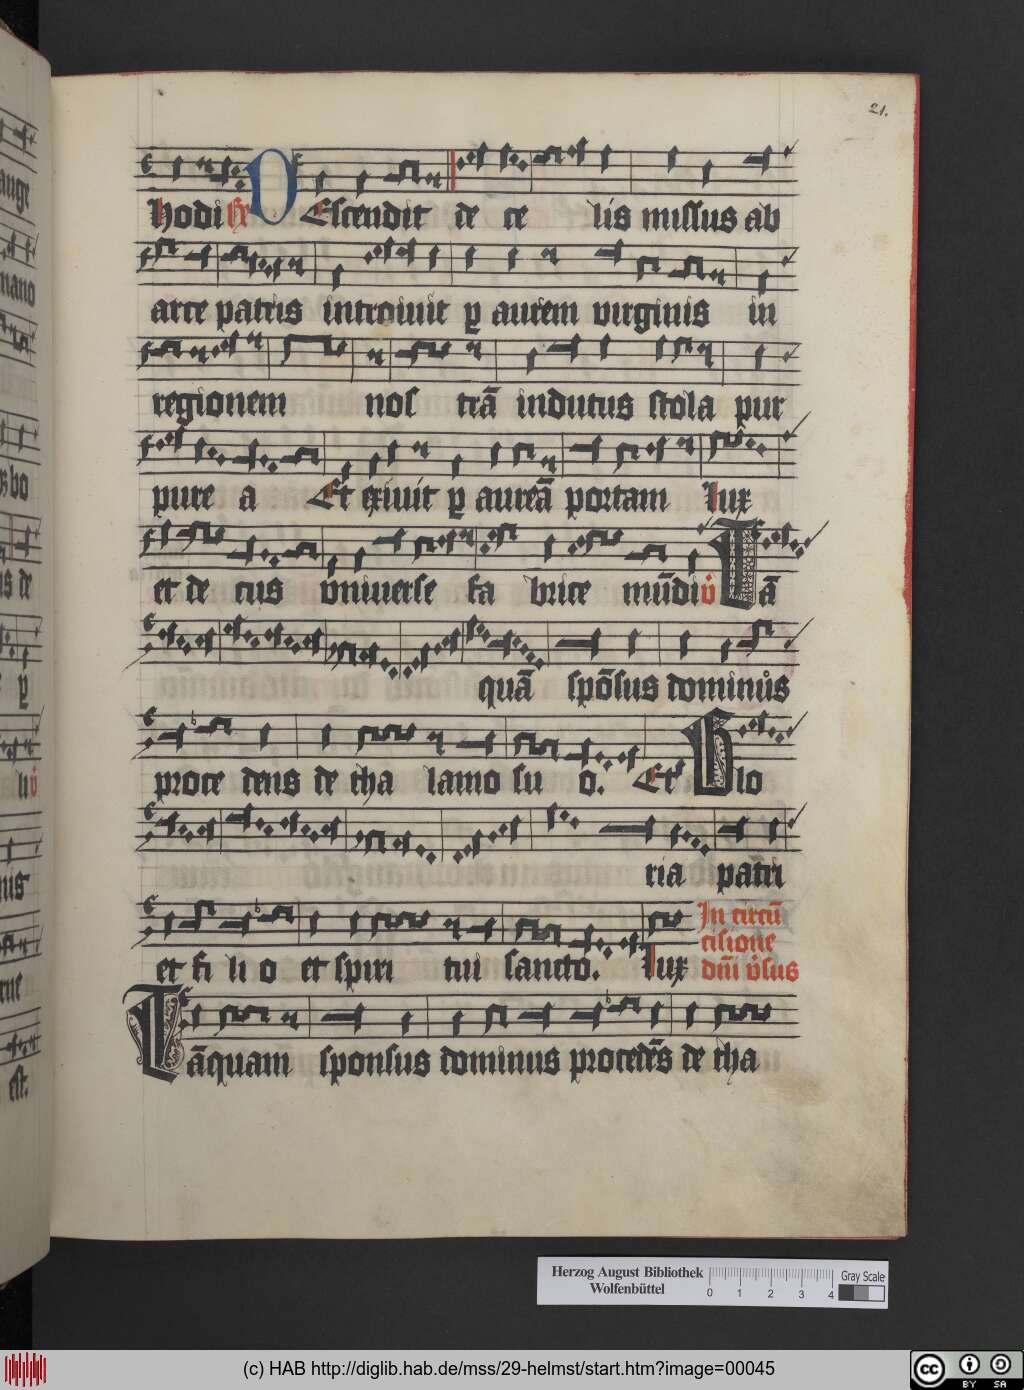 21.
hodi R̃ DEscendit de ce lis missus ab
arce patris introiuit ꝑ aurem virginis in
regionem nos trā indutus stola pur
pure a Et exiuit ꝑ aureā portam lux
et de cus vniuerse fa brice mūdi v̾ Tā
quā spōsus dominus
proce dens de tha lamo su o. Et Glo
ria patri
et fi li o et spiri tui sancto. lux
In circū
cisione
dñi v̾sus
Tāquam sponsus dominus procedēs de tha
ange
mano
bo
is de
ꝑ
li v̾
nis
rne
est.
Herzog August Bibliothek
Wolfenbüttel
0 1 2 3 4
Gray Scale
(c) HAB http://diglib.hab.de/mss/29-helmst/start.htm?image=00045
cc BY SA